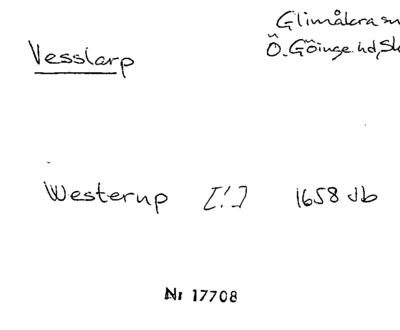 Glimåkra sn
Vesslarp
Ö. Göinge hd, Sk
Westerup [!] 1658 Jb
Nr 17708